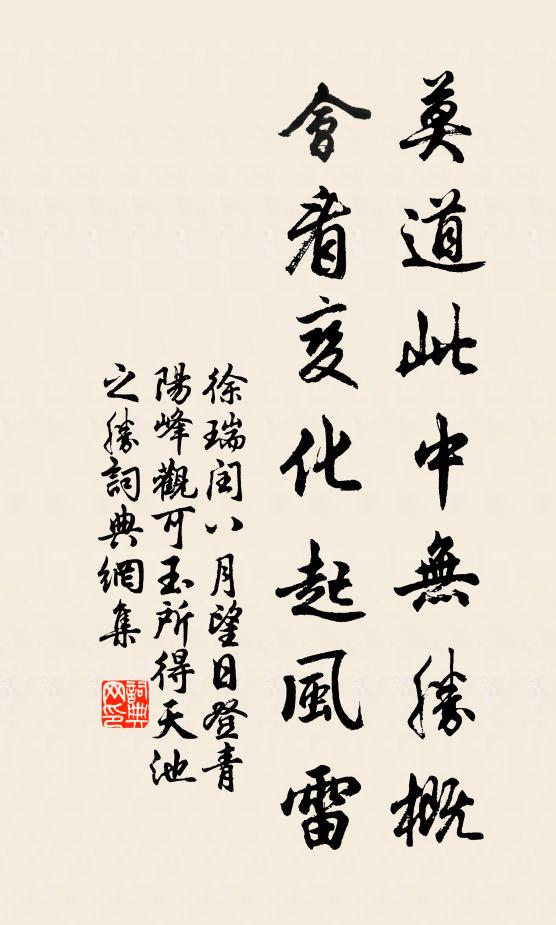 莫道此中無勝概
會看變化起風雷
徐瑞閏八月望日登青
陽峰觀可玉所得天池
之勝詞典網集
詞典網印